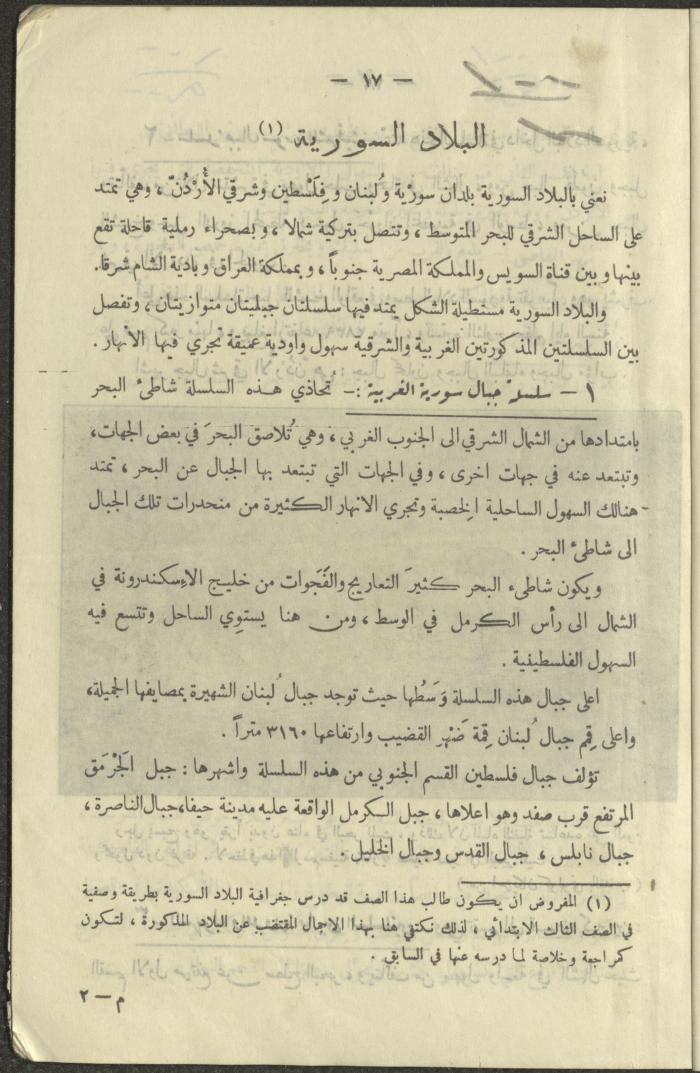 — ١٧ —
البلاد السورية (١)
نعني بالبلاد السورية بلدان سورْية ولُبنان وفِلَسْطين وشرقي الأُرْدُنّ ، وهي تمتد
على الساحل الشرقي للبحر المتوسط ، وتتصل بتركية شمالا ، وبصحراء رملية قاحلة تقع
بينها وبين قناة السويس والمملكة المصرية جنوباً ، وبمملكة العراق وبادية الشام شرقا.
والبلاد السورية مستطيلة الشكل يمتد فيها سلسلتان جبليتان متوازيتان ، وتفصل
بين السلسلتين المذكورتين الغربية والشرقية سهول واودية عميقة تجري فيها الانهار .
١ — سلسلة جبال سورية الغربية :— تُحاذي هذه السلسلة شاطئ البحر
بامتدادها من الشمال الشرقي الى الجنوب الغربي ، وهي تُلاصق البحرَ في بعض الجهات،
وتبتعد عنه في جهات اخرى ، وفي الجهات التي تبتعد بها الجبال عن البحر ، تمتد
هنالك السهول الساحلية الخِصبة وتجري الانهار الكثيرة من منحدرات تلك الجبال
الى شاطئ البحر .
ويكون شاطىء البحر كثيرَ التعاريج والفَجَوات من خليج الاسِكندرونة في
الشمال الى رأس الكرمل في الوسط ، ومن هنا يستوِي الساحل وتتسع فيه
السهول الفلسطينية .
اعلى جبال هذه السلسلة وَسَطُها حيث توجد جبال لُبنان الشهيرة بمصايفها الجميلة،
واعلى قِمم جبال لُبنان قِمة ضَهْر القضيب وارتفاعها ٣١٦٠ متراً .
تؤلف جبال فلسطين القسم الجنوبي من هذه السلسلة واشهرها : جبل الجَرْمَق
المرتفع قرب صفد وهو اعلاها ، جبل الكرمل الواقعة عليه مدينة حيفا، جبال الناصرة ،
جبال نابلس ، جبال القدس وجبال الخليل .
(١) المفروض ان يكون طالب هذا الصف قد درس جغرافية البلاد السورية بطريقة وصفية
في الصف الثالث الابتدائي ، لذلك نكتفي هنا بهذا الاجمال المقتضب عن البلاد المذكورة ، لتكون
كمراجعة وخلاصة لما درسه عنها في السابق .
م — ٢